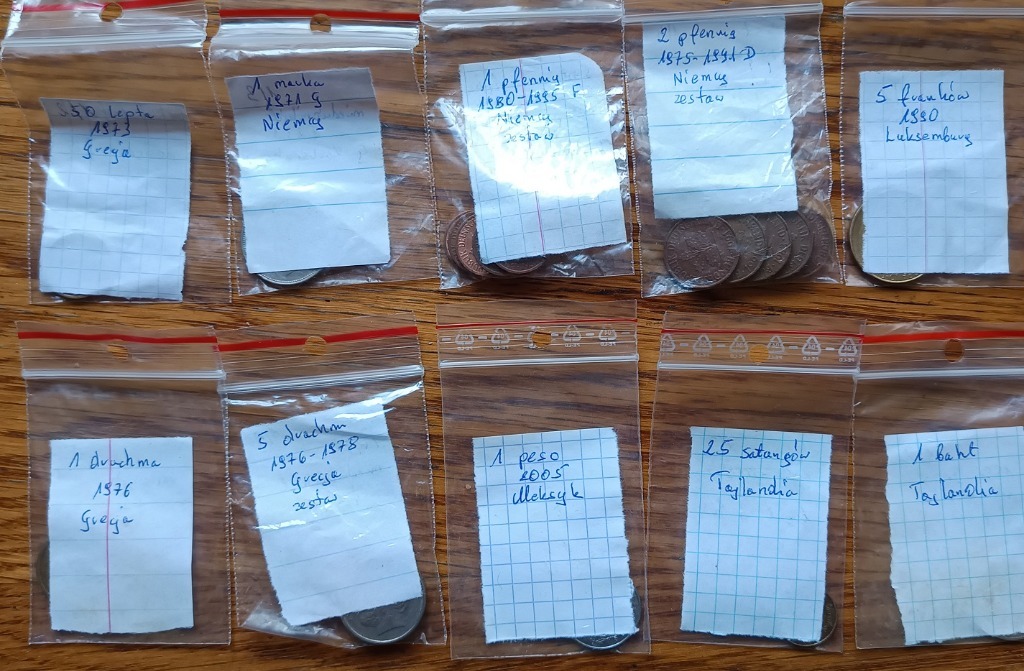 50 lepta
1973
Grecja
1 marka
1971 G
Niemcy
1 pfennig
1980-1995 F
Niemcy
zestaw
2 pfennig
1975-1991 D
Niemcy
zestaw
5 franków
1990
Luksemburg
1 drachma
1976
Grecja
5 drachm
1976-1978
Grecja
zestaw
1 peso
2005
Meksyk
25 satangów
Tajlandia
1 baht
Tajlandia